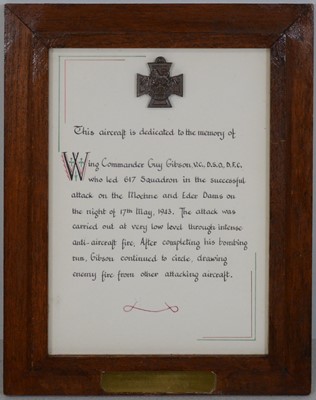 This aircraft is dedicated to the memory of
Wing Commander Guy Gibson, V.C., D.S.O., D.F.C,
who led 617 Squadron in the successful
attack on the Moehne and Eder Dams on
the night of 17th May, 1943. The attack was
carried out at very low level through intense
anti-aircraft fire. After completing his bombing
run, Gibson continued to circle, drawing
enemy fire from other attacking aircraft.